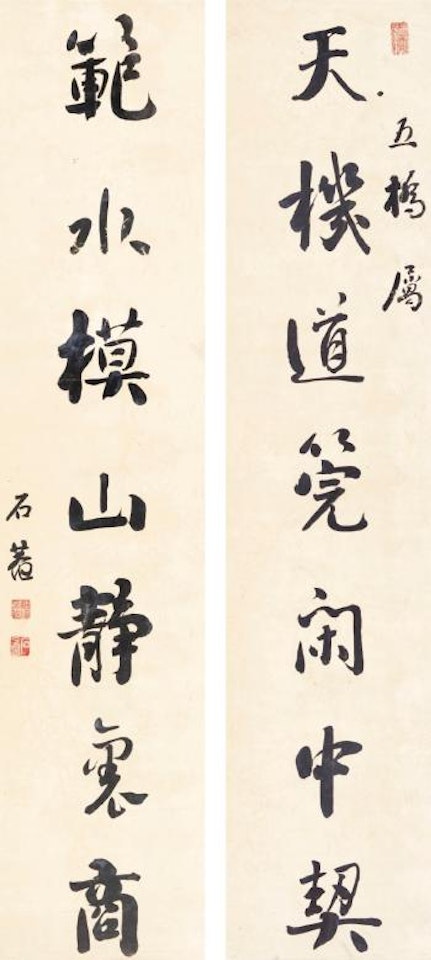 五橋屬
天機道筦閑中契
範水模山靜裏商
石菴